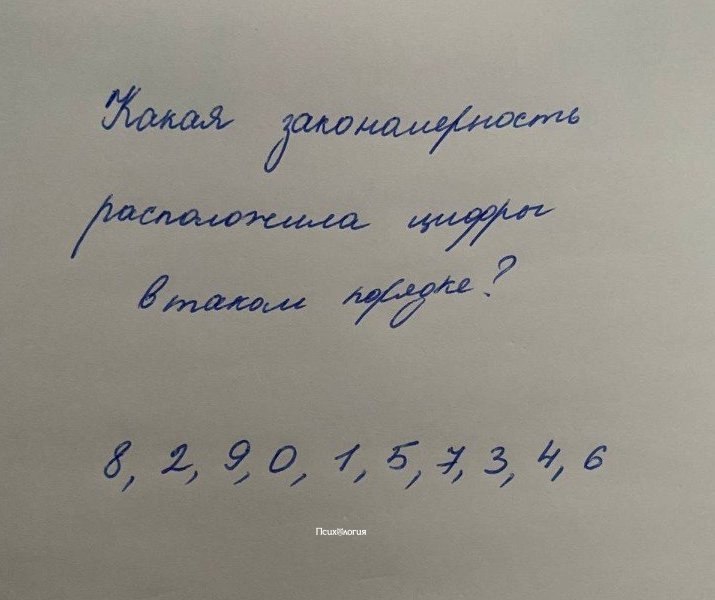 Какая закономерность
расположила цифры
в таком порядке?
8, 2, 9, 0, 1, 5, 7, 3, 4, 6
Психология